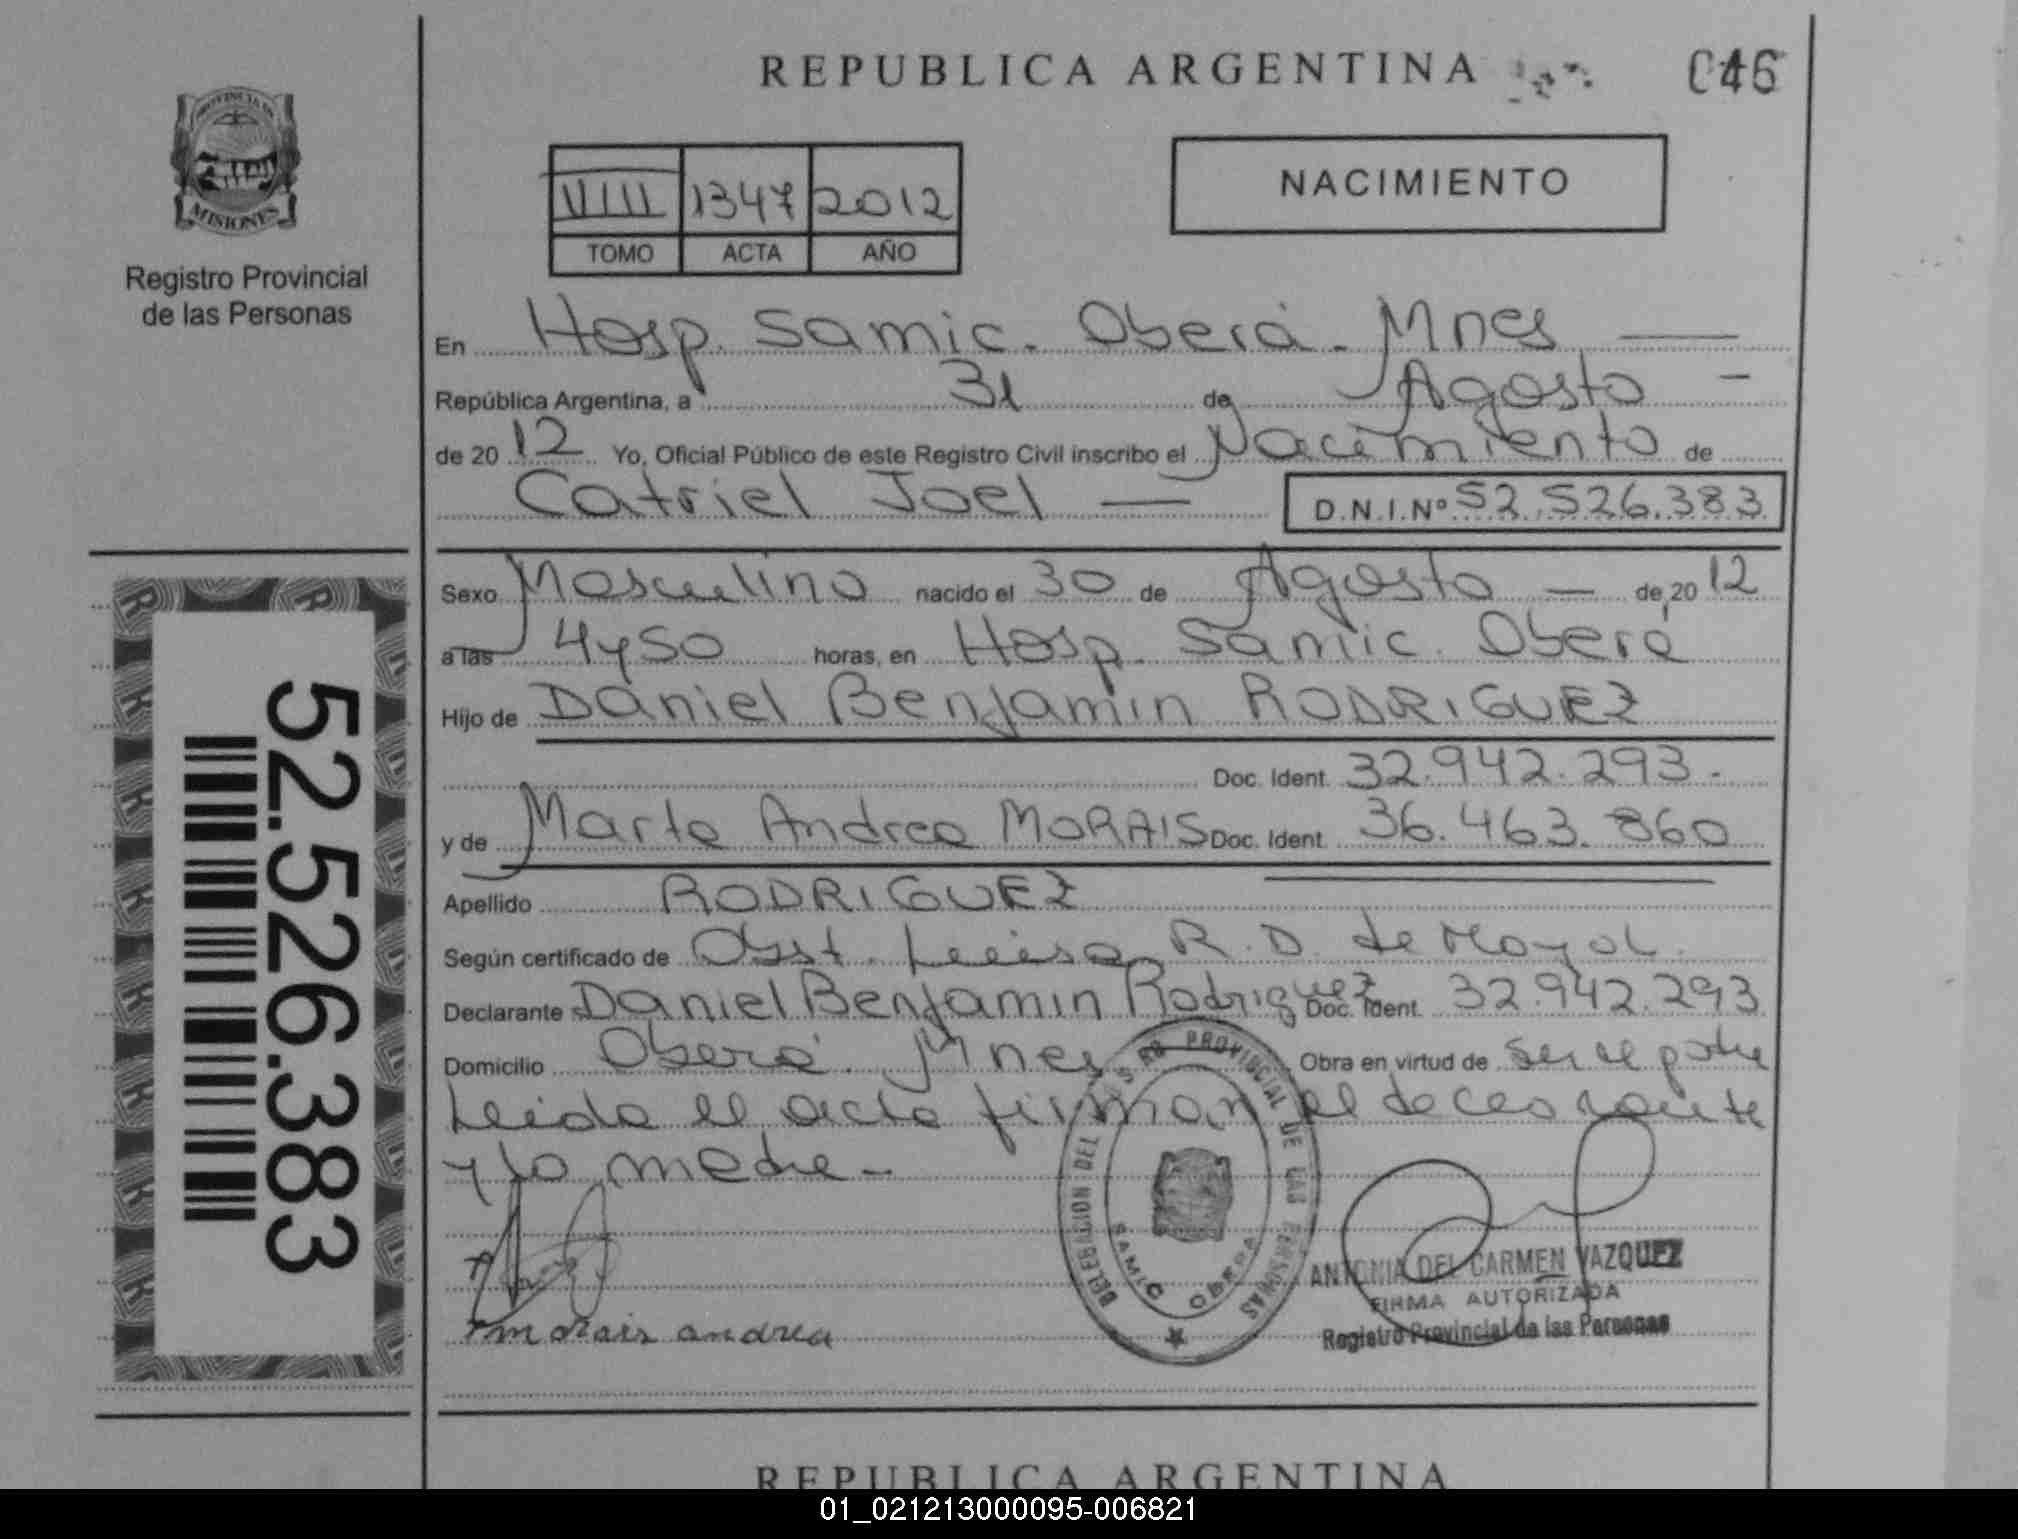 REPUBLICA ARGENTINA
046
PROVINCIA DE
MISIONES
Registro Provincial
de las Personas
VIII 1347 2012
TOMO ACTA AÑO
NACIMIENTO
En Hosp. Samic. Oberá. Mnes
República Argentina, a 31 de Agosto
de 20 12 Yo, Oficial Público de este Registro Civil inscribo el Nacimiento de
Catriel Joel D.N.I.Nº 52.526.383
Sexo Masculino nacido el 30 de Agosto de 20 12
a las 4 y 50 horas, en Hosp. Samic. Oberá
Hijo de Daniel Benjamin RODRIGUEZ
Doc. Ident. 32.942.293.
y de Marta Andrea MORAIS Doc. Ident. 36.463.860
Apellido RODRIGUEZ
Según certificado de Obst. Luisa R. D. de
Declarante Daniel Benjamin Rodriguez Doc. Ident. 32.942.293
Domicilio Oberá. Mnes Obra en virtud de ser el padre
Leida el acta firman el
y la madre
morais andrea
DELEGACION DEL REG PROVINCIAL DE LAS PERSONAS
SAMIC OBERA
ANTONIA DEL CARMEN VAZQUEZ
FIRMA AUTORIZADA
Registro Provincial de las Personas
52.526.383
REPUBLICA ARGENTINA
01_021213000095-006821